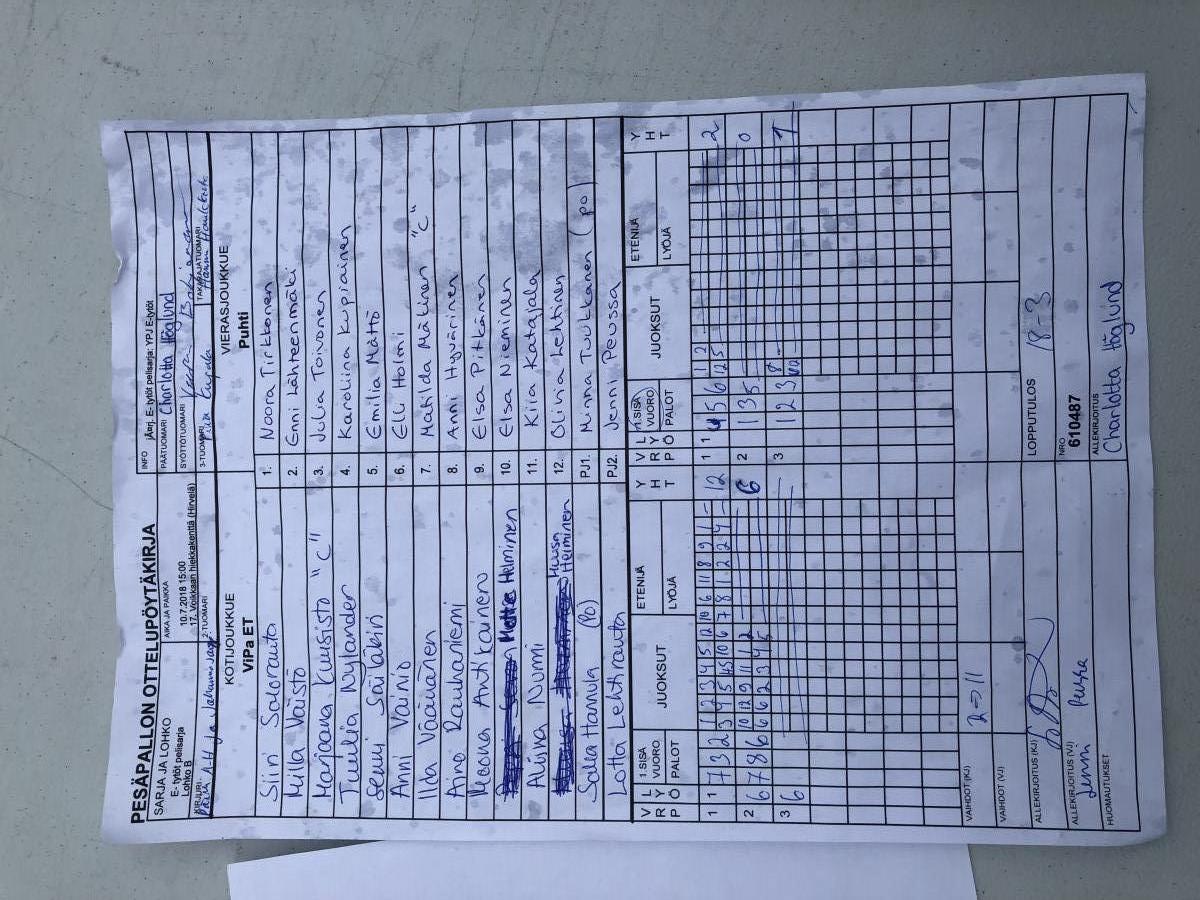 PESÄPALLON OTTELUPÖYTÄKIRJA
SARJA JA LOHKO
E- tytöt pelisarja
Lohko B
AIKA JA PAIKKA
10.7.2018 15:00
17. Voikkaan hiekkakenttä (Hirvelä)
INFO jÄrrj. E- tytöt pelisarja: YPJ E-tytöt
PÄÄTUOMARI Charlotta Höglund
SYÖTTÖTUOMARI
KIRJURI
2-TUOMARI
3-TUOMARI
TAKARAJATUOMARI
KOTIJOUKKUE
ViPa ET
VIERASJOUKKUE
Puhti
Siiri Salorauta 1. Noora Tirkkonen
Milla Väistö 2. Enni Lähteenmäki
Marjaana Kuusisto "C" 3. Julia Toivonen
Tuulia Nylander 4. Karoliina Kupiainen
Senni 5. Emilia Mättö
Anni Vainio 6. Eli Holmi
Ilta Väänänen 7. Matilda Mäkinen "C"
Aino Rauhaniemi 8. Anni Hyvärinen
Neona Antikainen 9. Elsa Pitkänen
Helminen 10. Elsa Nieminen
Alviina Nurmi 11. Kiia Katajala
Helminen 12. Olivia Lehtinen
Salla Hannula (po) PJ1. Minna Tuukkanen (po)
Lotta Lehtirauta PJ2. Jenni Peussa
V R P L Y Ö 1.SISÄ VUORO PALOT JUOKSUT ETENIJÄ LYÖJÄ Y H T V R P L Y Ö 1.SISÄ VUORO PALOT JUOKSUT ETENIJÄ LYÖJÄ Y H T
1 7 3 2 1 2 3 4 5 12 10 6 11 8 9 1 12 1 4 5 6 1 2 2
3 4 5 45 10 6 7 8 1 2 2 4 12 5
2 6 7 8 6 10 12 9 11 1 2 6 2 1 3 5 0
6 6 2 3 4 5
3 6 3 1 2 3 8 1
VAIHDOT (KJ) 2 => 11
VAIHDOT (VJ)
LOPPUTULOS 18-3
ALLEKIRJOITUS (KJ)
NRO
610487
ALLEKIRJOITUS (VJ) Jenni Peussa
ALLEKIRJOITUS
Charlotta Höglund
HUOMAUTUKSET